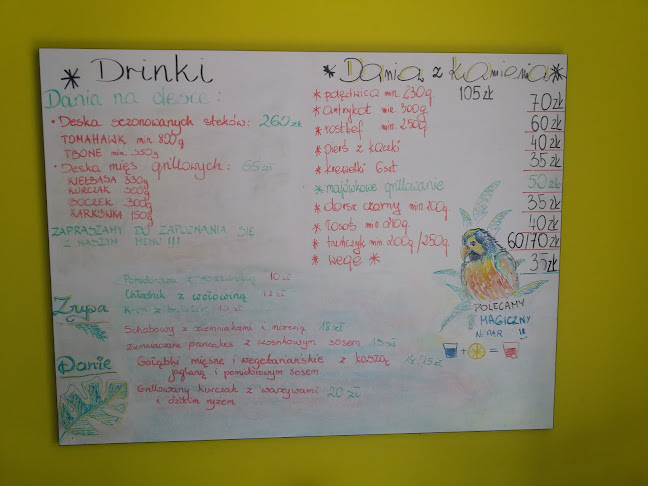 * Drinki
Dania na desce:
• Deska sezonowanych steków: 260 zł
TOMAHAWK min. 800g
TBONE min. 550g
• Deska mięs grillowanych: 65 zł
KIEŁBASA 330g
KURCZAK 300g
BOCZEK 300g
KARKÓWKA 150g
ZAPRASZAMY DO ZAPOZNANIA SIĘ
Z NASZYM MENU !!!
* Dania z kamienia *
* polędwica min. 230g 105 zł
* antrykot min. 300g 70 zł
* rostbef min. 250g 60 zł
* pierś z kaczki 40 zł
* krewetki 6szt 35 zł
* majówkowe grillowanie 50 zł
* dorsz czarny min 200g 35 zł
* łosoś min 210g 40 zł
* tuńczyk min. 200g/250g 60/70 zł
* wege * 35 zł
POLECAMY
MAGICZNY
NAPAR !!!
+ =
Zupa
Pomidorowa z 10 zł
Chłodnik z wołowiną 12 zł
Krem z
Danie
Schabowy z ziemniakami i mizerią 18 zł
pancakes z czosnkowym sosem 15 zł
Gołąbki mięsne i wegetariańskie z kaszą
jaglaną i pomidorowym sosem
Grillowany kurczak z warzywami 20 zł
i dzikim ryżem